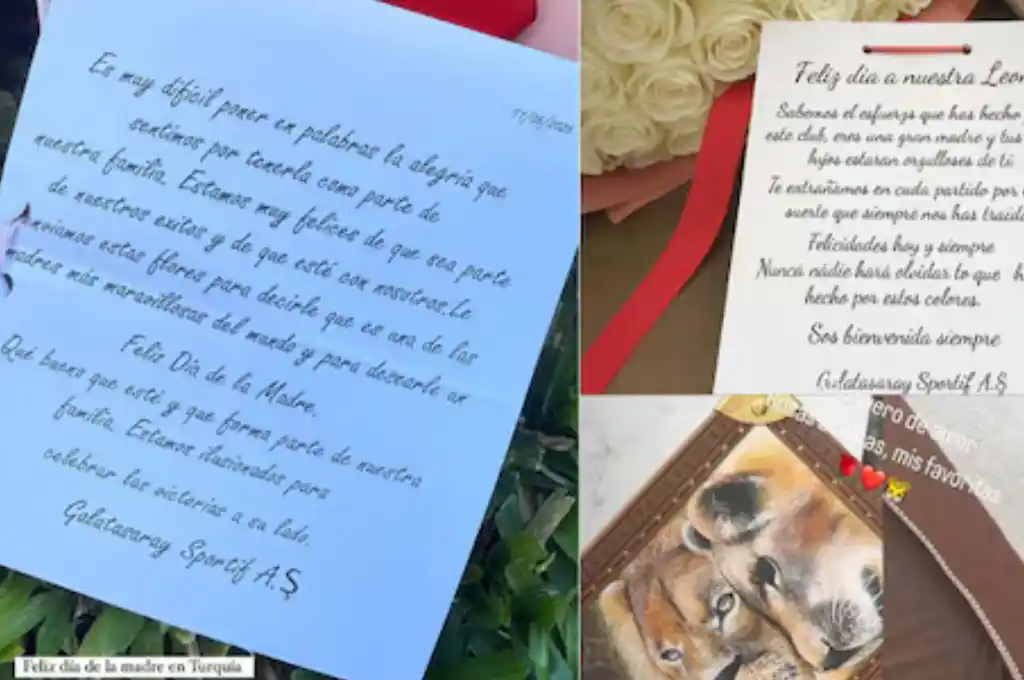 Es muy difícil poner en palabras la alegría que
sentimos por tenerla como parte de
nuestra familia. Estamos muy felices de que sea parte
de nuestros exitos y de que esté con nosotros.Le
enviamos estas flores para decirle que es una de las
madres más maravillosas del mundo y para desearle un
Feliz Día de la Madre.
Qué bueno que esté y que forma parte de nuestra
familia. Estamos ilusionados para
celebrar las victorias a su lado.
Galatasaray Sportif A.Ş
Feliz día de la madre en Turquía
Feliz dia a nuestra Leon
Sabemos el esfuerzo que has hecho
este club, eres una gran madre y tus
hijos estaran orgullosos de tú
Te extrañamos en cada partido por
suerte que siempre nos has traido
Felicidades hoy y siempre
Nunca nádie hará olvidar lo que h
hecho por estos colores.
Sos bienvenida siempre
Galatasaray Sportif A.Ş
ero de amor
as, mis favoritas